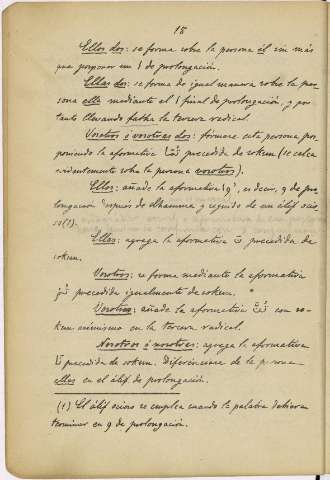 18
Ellos dos: se forma sobre la persona él sin más
que posponer un ا de prolongación.
Ellas dos: se forma de igual manera sobre la per-
sona ella mediante el ا final de prolongación, y por
tanto llevando fatha la tercera radical.
Vosotros ó vosotras dos: fórmase esta persona pos-
poniendo la aformativa تُمَا precedida de sokun (se calca
evidentemente sobre la persona vosotros).
Ellos: añade la aformativa وا, es decir, و de pro-
longación después de dhamma y seguido de un álif ocio-
so (1).
Ellas: agrega la aformativa نَ precedida de
sokun.
Vosotros: se forma mediante la aformativa
تُمْ precedida igualmente de sokun.
Vosotras: añade la aformativa تُنَّ con so-
kun asimismo en la tercera radical.
Nosotros ó nosotras: agrega la aformativa
نَا precedida de sokun. Diferénciase de la persona
ellas en el álif de prolongación.
(1) El álif ocioso se emplea cuando la palabra debiera
terminar en و de prolongación.